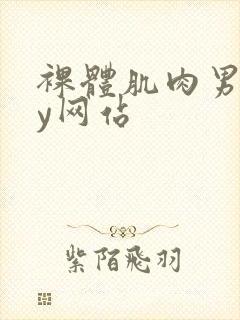 裸體肌肉男
y网佔
紫陌飛羽